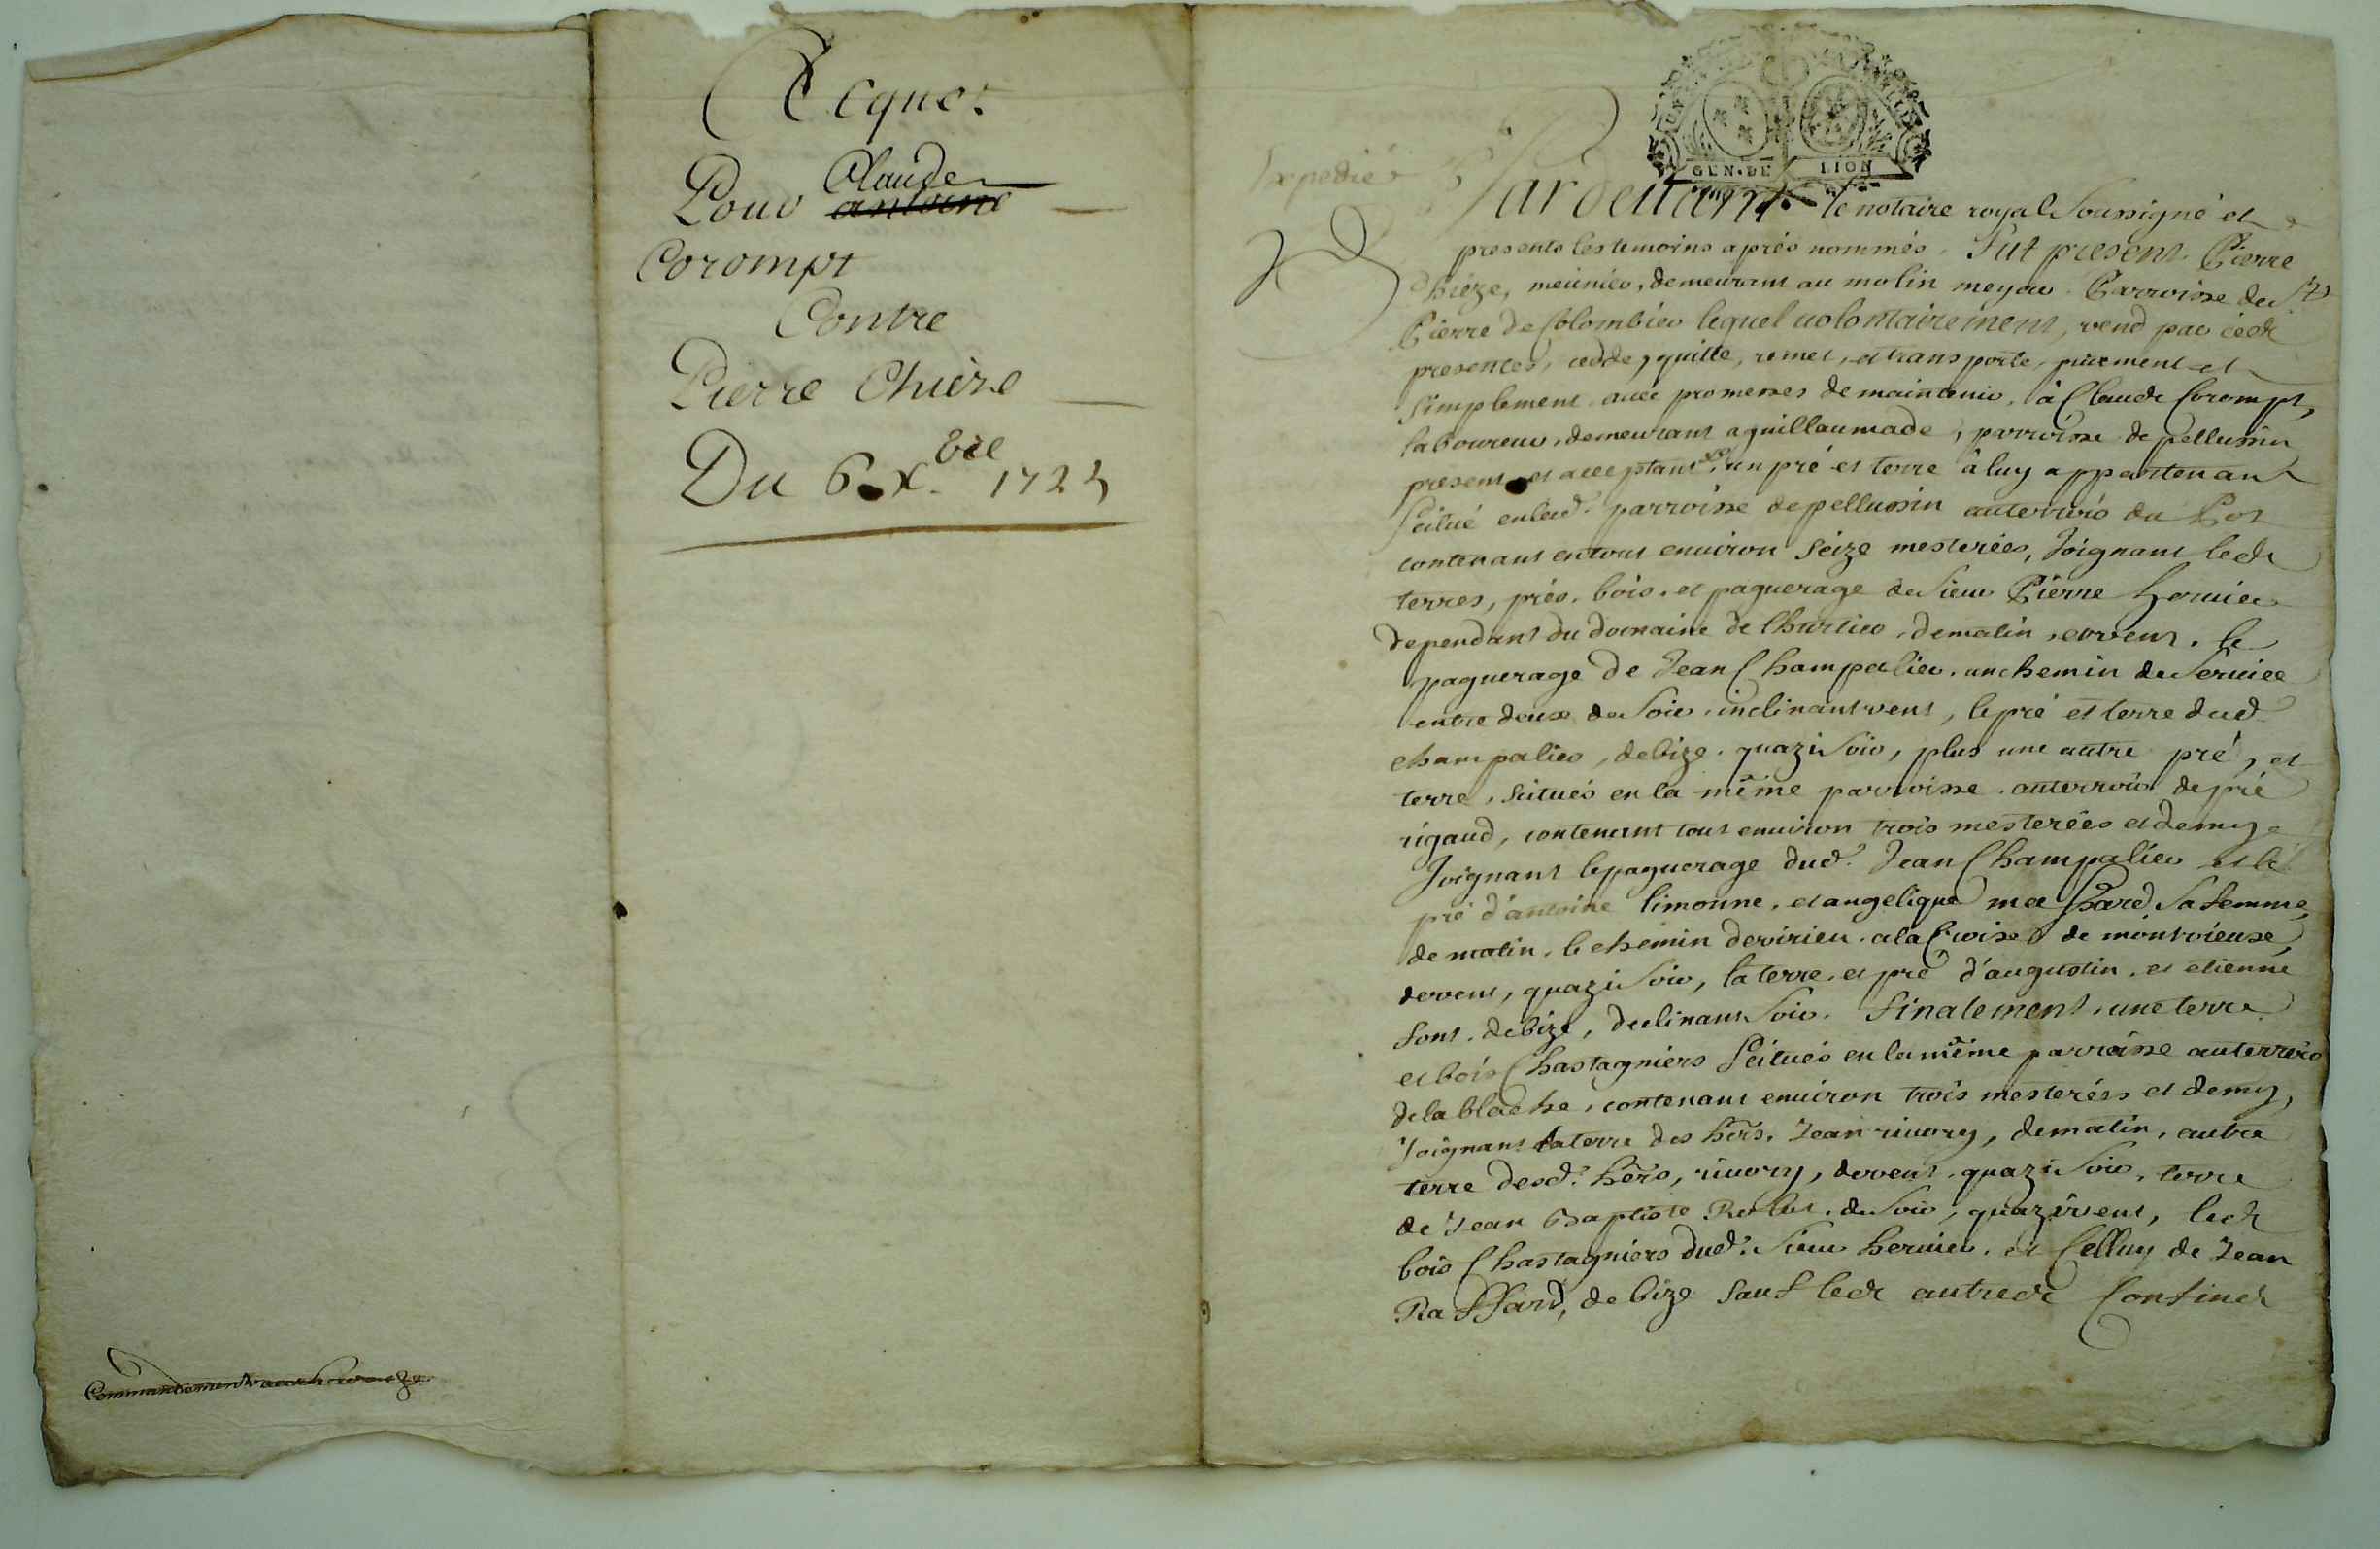 Acquet
Pour Claude antoine
Corompt
Contre
Pierre Chieze
Du 6 xbre 1724
GEN. DE LION
Expedié
Pardeuant le notaire royal soussigné et
presents les temoins aprés nommés. Fut present Pierre
Chieze, meunier, demeurant au molin meyou Parroisse de St
Pierre de Colombier lequel uolontairement, vend par cesd
presentes, cedde, quitte, remet, et transporte, purement et
simplement auec promesses de maintenir, à Claude Corompt,
laboureur, demeurant a guillaumade, parroisse de pellussin
present et acceptant, un pré et terre à luy appartenant
scitué en lad. parroisse de pellussin au terroir du
contenant en tout enuiron seize mesterées, Joignant led
terres, prés, bois, et paquerage du sieur Pierre heruier
dependant du domaine de de matin et vent, le
paquerage de Jean Champalier, un chemin de seruice
entre deux de soir inclinant vent, le pré et terre dud.
champalier, de bize quazi soir, plus une autre pré, et
terre, scitués en la même parroisse au terroir de pré
rigaud, contenant tout enuiron trois mesterées et demy
Joignant le paquerage dud. Jean Champalier et le
pré d'antoine limonne, et angelique sa femme,
de matin, le chemin de virieu a la Croise de montvieuse,
de vent, quazi soir, la terre, et pré d'augustin, et etienne
font, de bize, declinant soir. Finalement, une terre
et bois Chastagniers scitués en la même parroisse au terroir
de la blache, contenant enuiron trois mesterées et demy,
Joignant la terre des hers. Jean riuory, de matin, autre
terre desd. hers, riuory, de vent, quazi soir, terre
de Jean Baptiste de soir, quazi vent, led
bois Chastagniers dud. sieur heruier, et Celluy de Jean
Raffard, de bize sauf led autred Confined